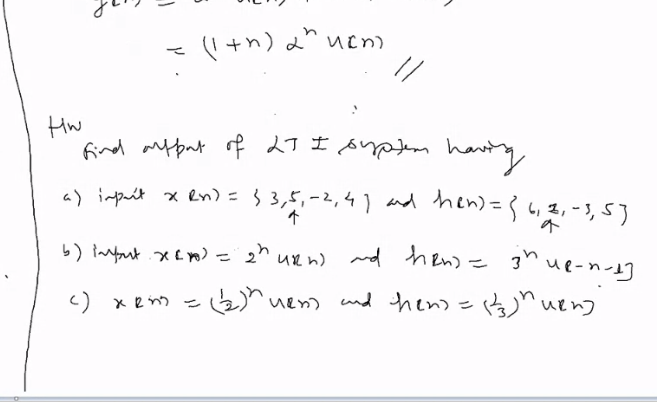 = (1+n) 2ⁿ u[n] //
HW
Find output of LTI system having
a) input x[n] = {3,5,-2,4} and h[n] = {6, -3, 5}
↑ ↑
b) input x[n] = 2ⁿ u[n] and h[n] = 3ⁿ u[-n-1]
c) x[n] = (1/2)ⁿ u[n] and h[n] = (1/3)ⁿ u[n]